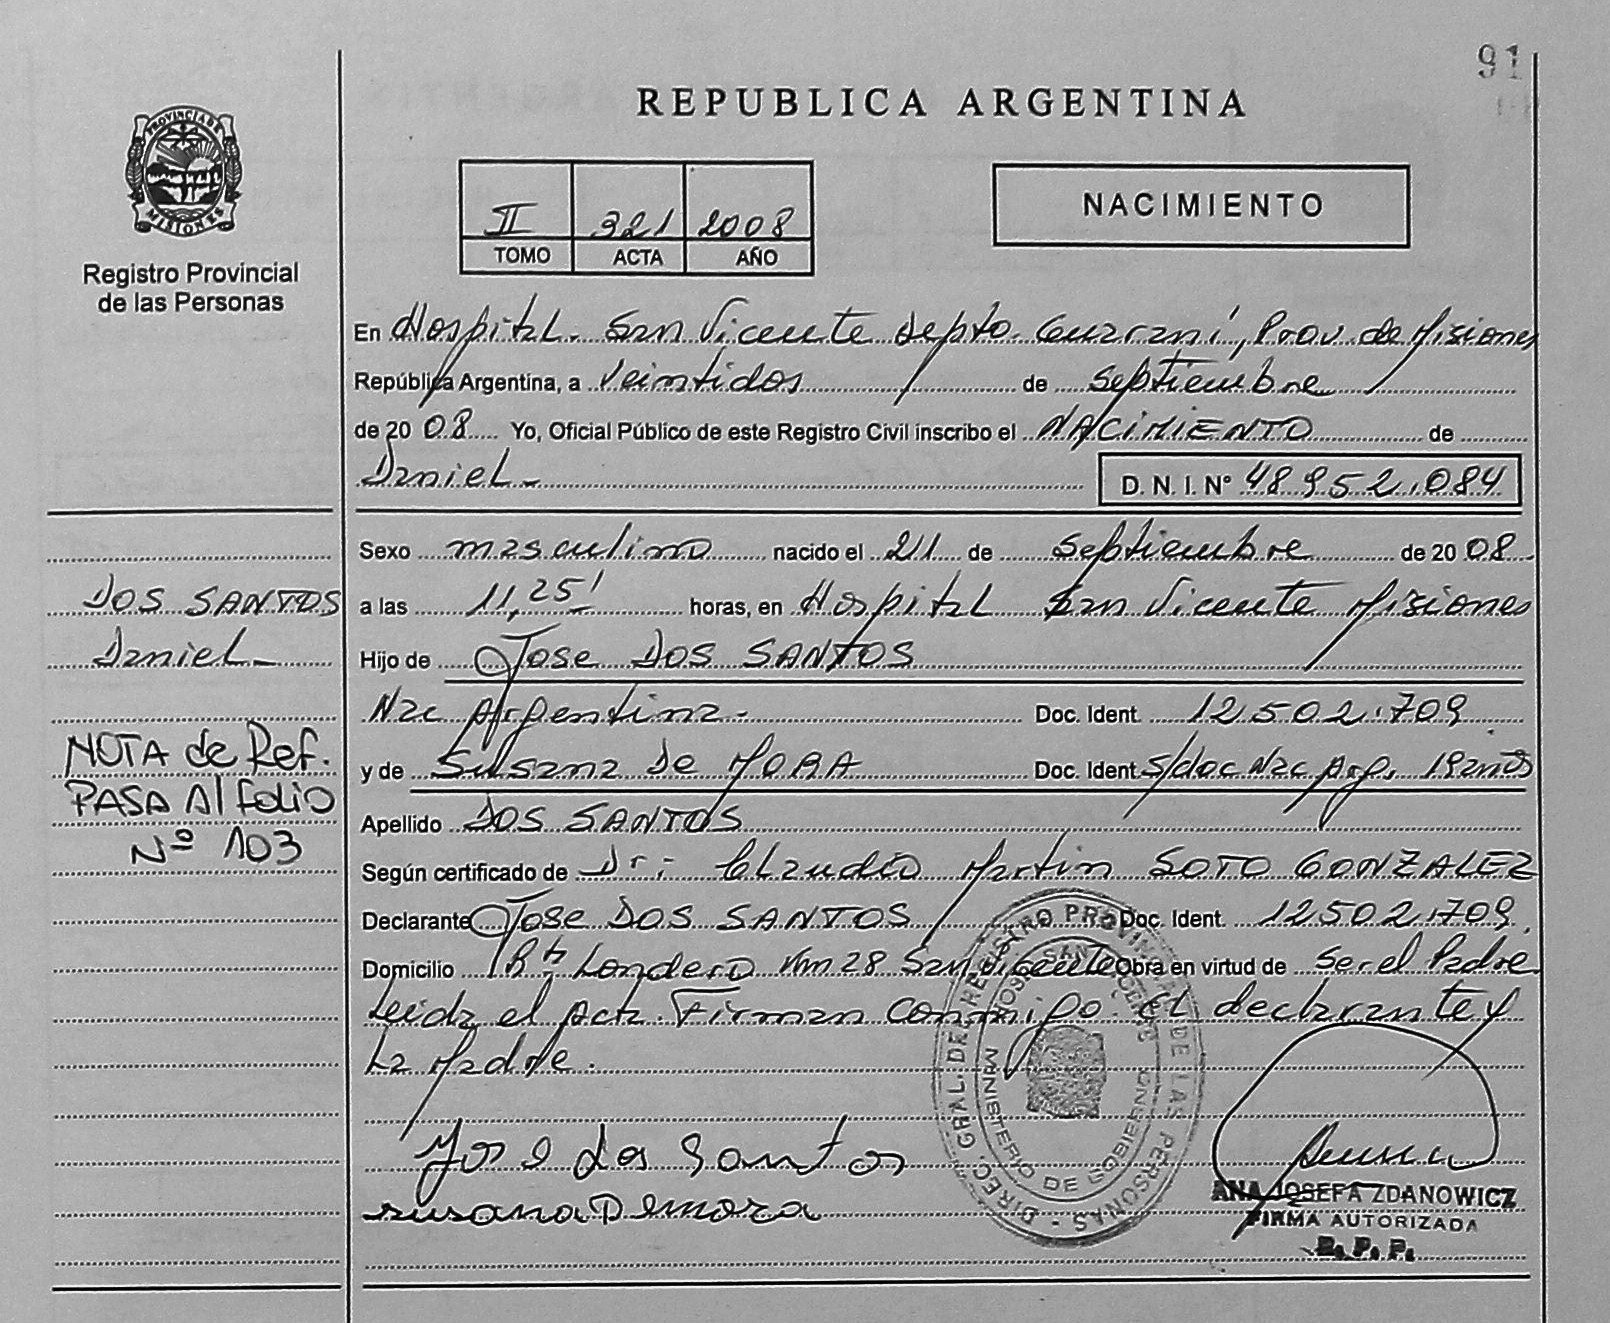 91
REPUBLICA ARGENTINA
PROVINCIA DE
MISIONES
Registro Provincial
de las Personas
II 321 2008
TOMO ACTA AÑO
NACIMIENTO
En Hospital. San Vicente Depto. Guarani, Prov. de Misiones
República Argentina, a veintidos de Septiembre
de 2008 Yo, Oficial Público de este Registro Civil inscribo el NACIMIENTO de
Daniel.-
D. N. I. Nº 48952.084
Sexo masculino nacido el 21 de Septiembre de 2008
a las 11,25' horas, en Hospital San Vicente Misiones
Hijo de Jose DOS SANTOS
Nac Argentina. Doc. Ident. 12.502.709
y de Susana De MORA Doc. Ident. S/doc Nac Arg. 19 años
Apellido DOS SANTOS
Según certificado de Dr: Claudio Martin SOTO GONZALEZ
Declarante Jose DOS SANTOS Doc. Ident. 12502.709.
Domicilio Londero Km 28 San Vicente Obra en virtud de ser el Padre
Leida el Acta. Firman Conmigo. El declarante y
La Madre.
Jose dos Santos
susana Demora
DOS SANTOS
Daniel.-
NOTA de Ref.
PASA Al folio
Nº 103
DIREC. GRAL. DEL REGISTRO PROVINCIAL DE LAS PERSONAS -
MINISTERIO DE GOBIERNO
SAN VICENTE
ANA JOSEFA ZDANOWICZ
FIRMA AUTORIZADA
R. P. P.